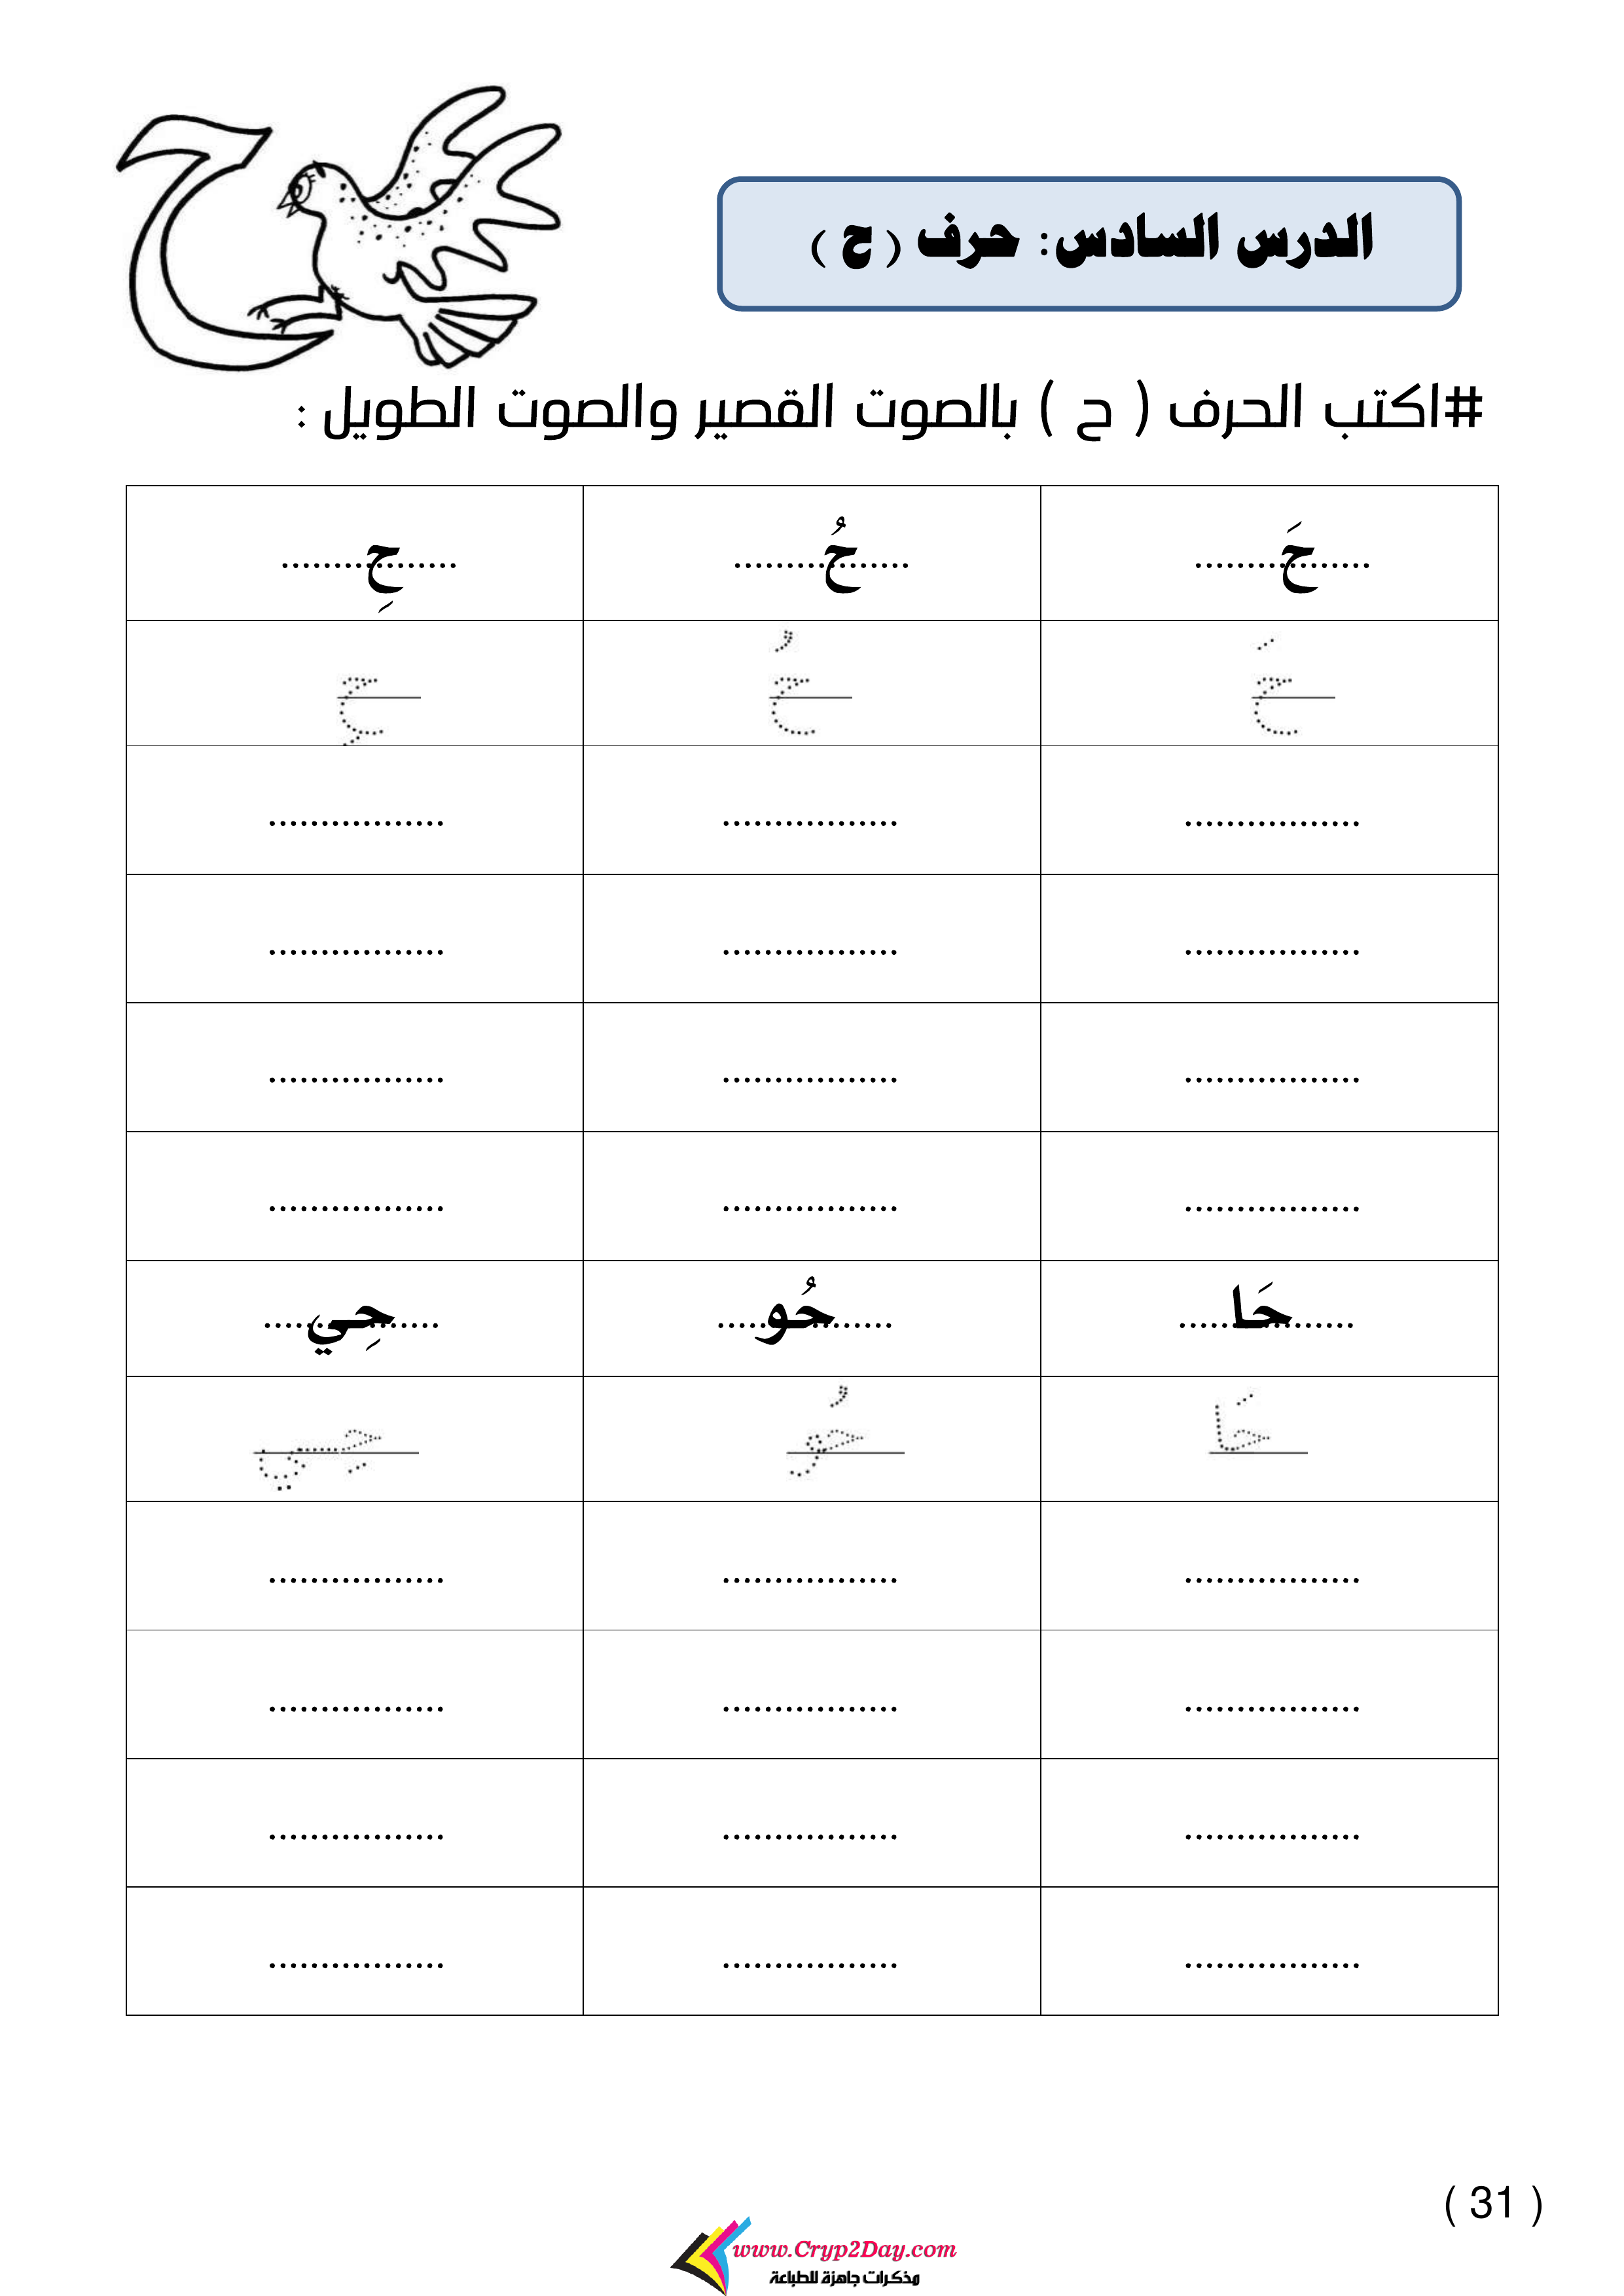 الدرس السادس: حرف ( ح )
#اكتب الحرف ( ح ) بالصوت القصير والصوت الطويل :
حَ حُ حِ
حَ حُ حِ
حَا حُو حِي
حَا حُو حِي
( 31 )
www.Cryp2Day.com
مذكرات جاهزة للطباعة